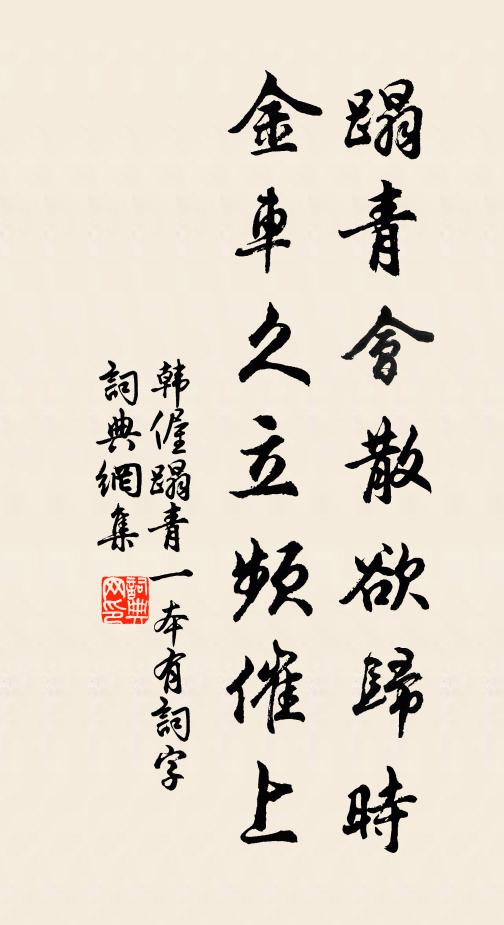 蹋青會散欲歸時
金車久立頻催上
韩偓蹋青一本有詞字
詞典網集
詞典网印